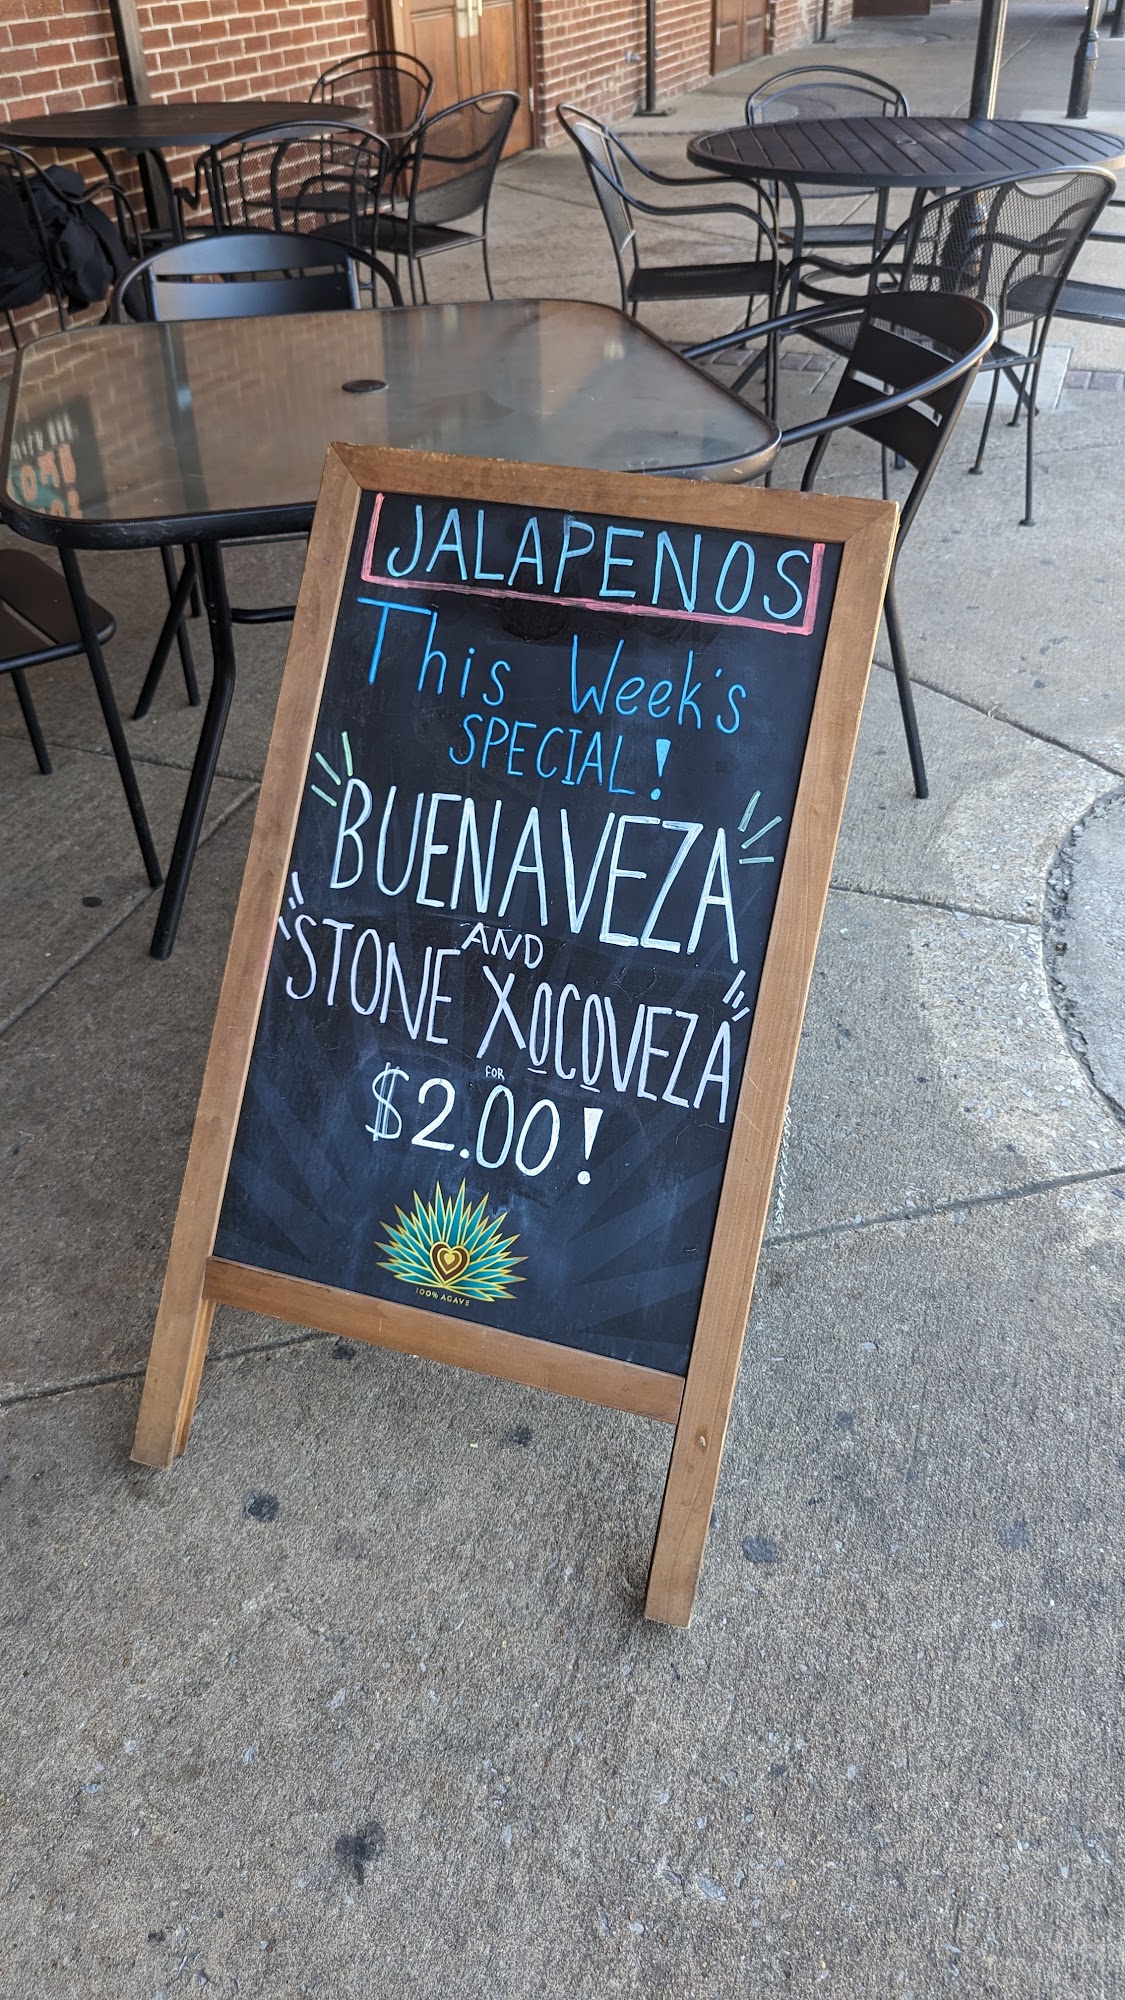 JALAPENOS
This Week's
SPECIAL!
BUENAVEZA
AND
STONE XOCOVEZA
FOR
$2.00!
100% AGAVE